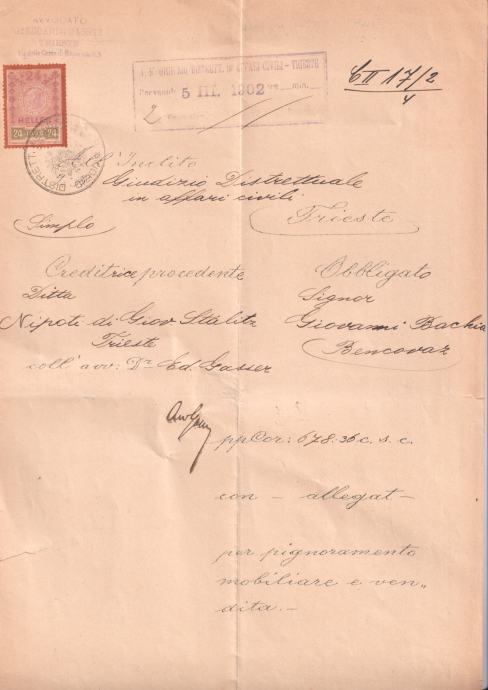 AVVOCATO
TRIESTE
24
HELLER
24 24
I. R. GIUDIZIO DISTRETT. IN AFFARI CIVILI - TRIESTE
5 III. 1902
2
E II 17/2
4
All'Inclito
Giudizio Distrettuale
in affari civili
Trieste
Simplo
Creditrice procedente
Ditta
Nipoti di Giov Stalitz
Trieste
coll' avv: Dr Ed Gasser
Obbligato
Signor
Giovanni Bachia
Bencovaz
pp Cor: 678.36 c. s. c.
con - allegat -
per pignoramento
mobiliare e ven„
dita. -